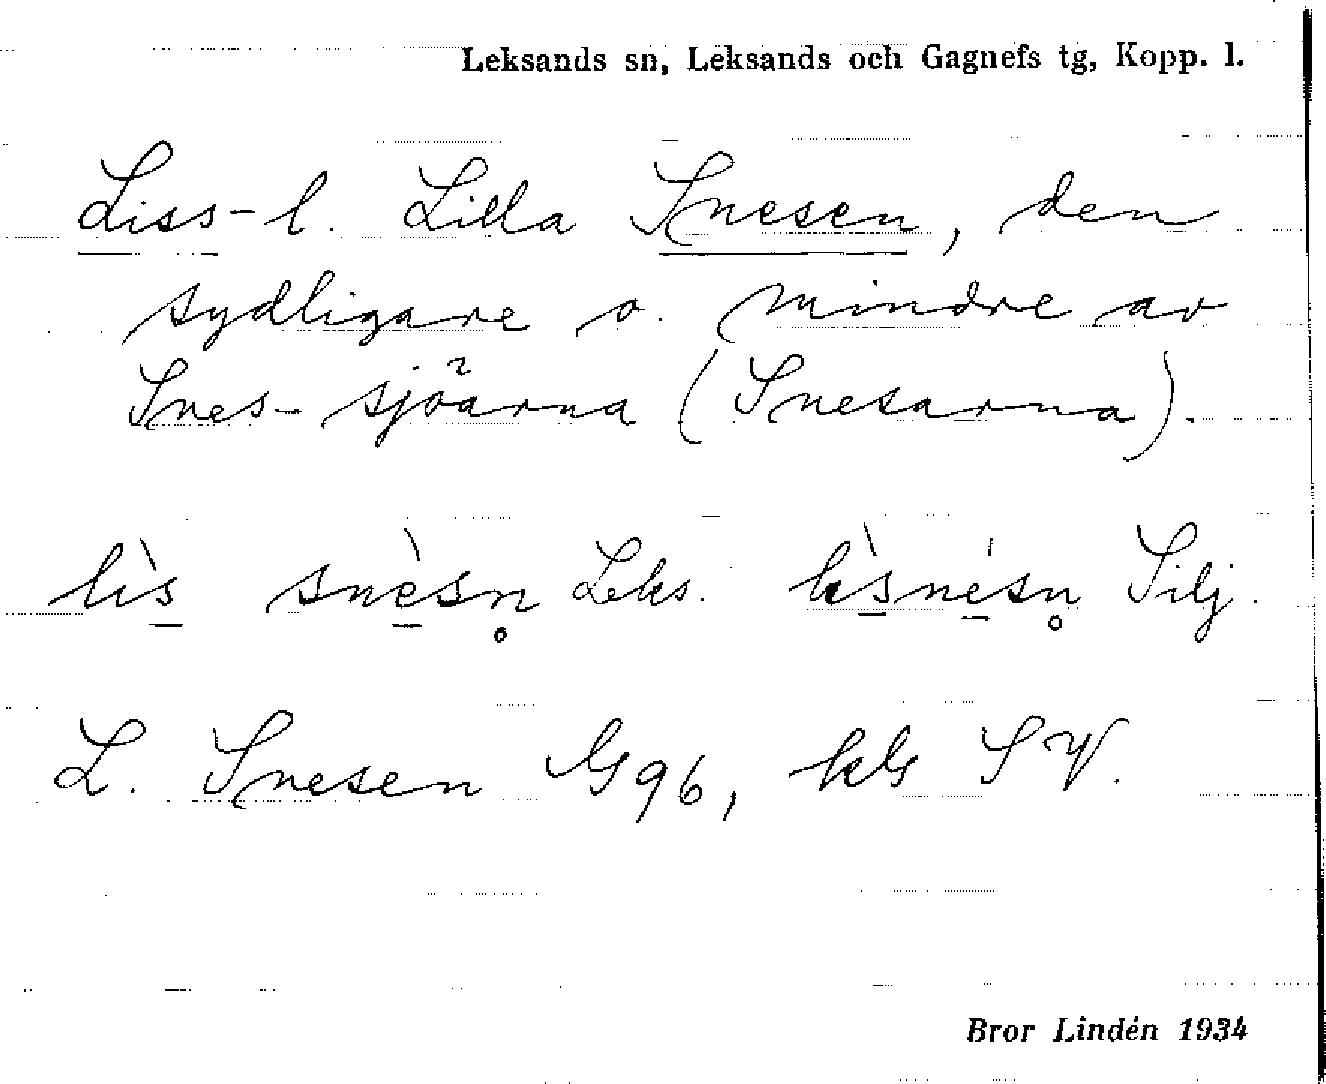 Leksands sn, Leksands och Gagnefs tg, Kopp. l.
Liss- l. Lilla Snesen, den
sydligare o. mindre av
Snes-sjöarna (Snesarna).
lìs snèsn̥ Leks. lìsnésn̥ Silj.
L. Snesen G96, kb SV.
Bror Lindén 1934